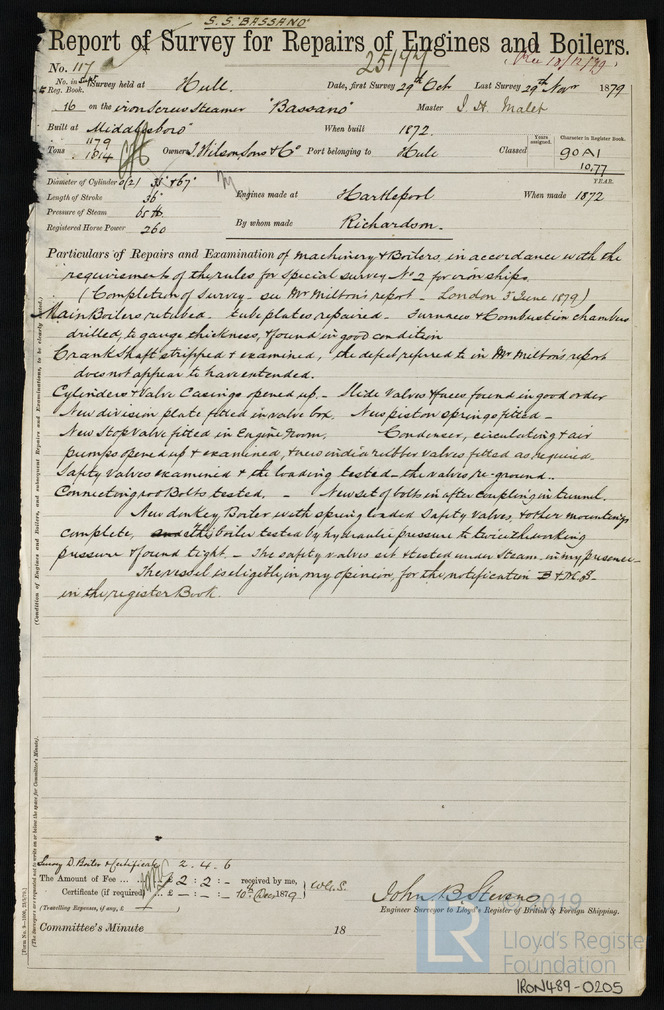 S.S. "BASSANO"
Report of Survey for Repairs of Engines and Boilers.
No. 117
25197
18/12/79
No. in Survey held at Hull. Date, first Survey 29th Oct Last Survey 29th Novr 1879
Reg. Book.
16 on the iron Screw Steamer "Bassano" Master J. H. Malet
Built at Middlesboro' When built 1872.
Tons 1179
1614
Owners T. Wilson Sons & Co Port belonging to Hull Classed
Years assigned.
Character in Register Book.
90 A1
10,77
YEAR.
Diameter of Cylinder 35" & 67"
Length of Stroke 36"
Pressure of Steam 65 lb
Registered Horse Power 260
Engines made at Hartlepool When made 1872
By whom made Richardson.
Particulars of Repairs and Examination of machinery & Boilers, in accordance with the
requirements of the rules for special survey No 2 for iron ships.
(Completion of Survey - see Mr Milton's report - London 3 June 1879)
Main Boilers retubed. tube plates repaired. Furnaces & Combustion chambers
drilled, to gauge thickness, & found in good condition
Crank Shaft stripped & examined, the defect referred to in Mr Milton's report
does not appear to have extended.
Cylinders & Valve Casings opened up. - Slide Valves & faces found in good order
New division plate fitted in valve box. New piston springs fitted -
New Stop Valve fitted in Engine Room. Condenser, circulating & air
pumps opened up & examined, & new india rubber valves fitted as required.
Safety Valves examined & the loading tested - the valves re-ground..
Connecting rod Bolts tested. - New set of bolts in after coupling in tunnel.
New donkey Boiler with spring loaded Safety Valves, & other mountings
complete, and the boiler tested by hydraulic pressure to twice the working
pressure & found tight - The safety valves set & tested under Steam in my presence -
The vessel is eligible, in my opinion, for the notification B & M.S.
in the register Book.
(Condition of Engines and Boilers, and subsequent Repairs and Examinations, to be clearly stated.)
(The Surveyors are requested not to write on or below the space for Committee's Minute).
Survey D. Boiler & Certificate 2. 4. 6
The Amount of Fee ... £ 2 : 2 : - received by me,
Certificate (if required) ... £ - : - : - 10th Dec 1879. W.G.S.
(Travelling Expenses, if any, £ )
John B. Stevens
Engineer Surveyor to Lloyd's Register of British & Foreign Shipping.
Committee's Minute 18
2019
LR
Lloyd's Register
Foundation
IRON489-0205